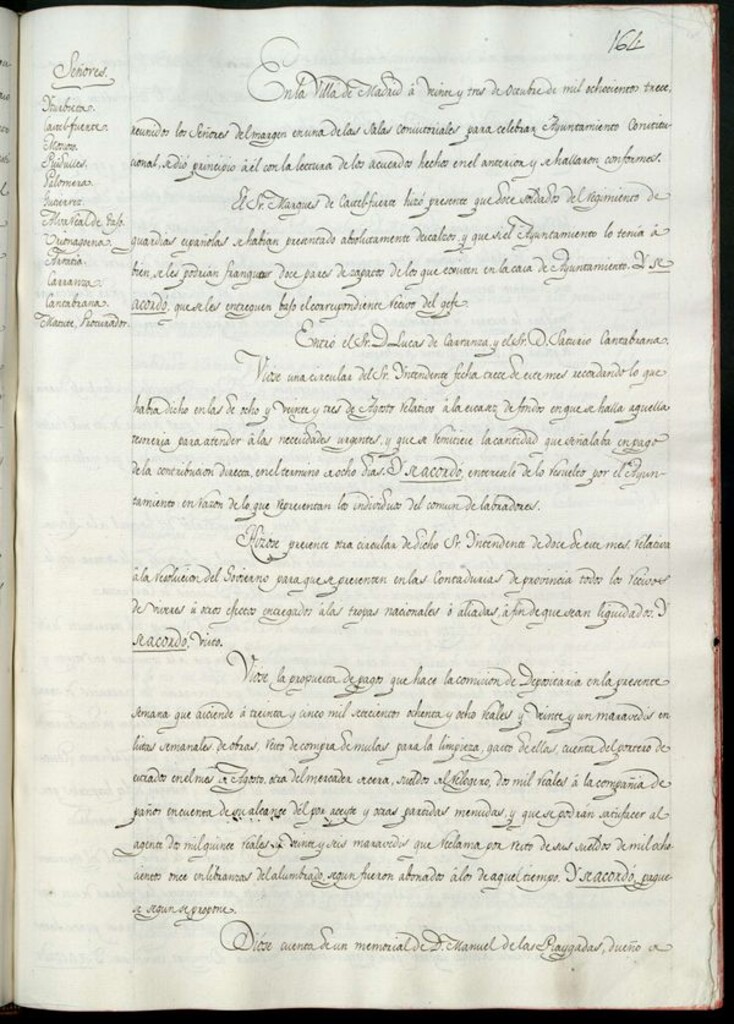 164
Señores.
Yturbieta.
Castel-fuerte.
Palomera.
Gutierrez.
Alva Real de Taxo.
Carranza.
Cantabrana.
Matute, Procurador.
En la Villa de Madrid á veinte y tres de Octubre de mil ochocientos trece,
reunidos los Señores del margen en una de las Salas consistoriales para celebrar Ayuntamiento Constitu-
cional, se dió principio á él con la lectura de los acuerdos hechos en el anterior y se hallaron conformes.
El Sr. Marques de Castel-fuerte hizo presente que doce soldados del regimiento de
guardias españolas se habian presentado absolutamente descalzos, y que si el Ayuntamiento lo tenia á
bien, se les podrian franquear doce pares de zapatos de los que existen en la casa de Ayuntamiento. Y se
acordó, que se les entreguen bajo el correspondiente recivo del gefe.
Entró el Sr. D. Lucas de Carranza, y el Sr. D. Saturio Cantabrana.
Viose una circular del Sr. Yntendente fecha trece de este mes recordando lo que
habia dicho en las de ocho y veinte y tres de Agosto relativas á la escasez de fondos en que se halla aquella
tesoreria para atender á las necesidades urgentes, y que se remitiese la cantidad que señalaba en pago
de la contribucion directa, en el termino de ocho dias. Y se acordó, enterarle de lo resuelto por el Ayun-
tamiento en razon de lo que representan los individuos del comun de labradores.
Hizose presente otra circular de dicho Sr. Yntendente de doce de este mes, relativa
á la resolucion del Govierno para que se presenten en las Contadurias de provincia todos los recivos
de viveres ú otros efectos entregados á las tropas nacionales ó aliadas, á fin de que sean liquidados. Y
se acordó, Visto.
Viose la propuesta de pagos que hace la comision de Depositaria en la presente
semana que asciende á treinta y cinco mil setecientos ochenta y ocho reales y veinte y un maravedis en
listas semanales de obras, resto de compra de mulas para la limpieza, gasto de ellas, cuenta del portero de
estrados en el mes de Agosto, otra del mercader de cera, sueldos del relogero, dos mil reales á la compañia de
paños en cuenta de su alcance del por aceyte y otras partidas menudas, y que se podrán satisfacer al
agente dos mil quince reales y veinte y seis maravedis que reclama por resto de sus sueldos de mil ocho-
cientos once en libranzas del alumbrado, segun fueron abonados á los de aquel tiempo. Y se acordó, pague-
se segun se propone.
Diose cuenta de un memorial de D. Manuel de las Playgadas, dueño de